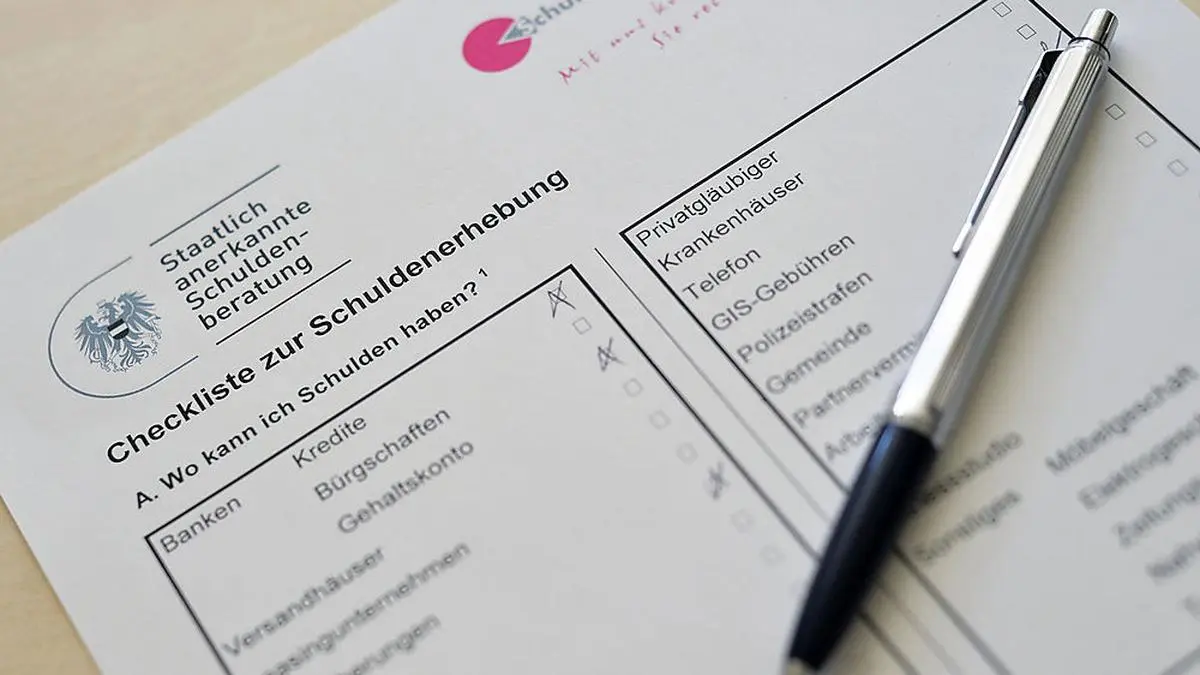 Schul
Mit uns
Sie
Staatlich
anerkannte
Schulden-
beratung
Checkliste zur Schuldenerhebung
A. Wo kann ich Schulden haben? 1
Banken
Kredite
Bürgschaften
Gehaltskonto
Versandhäuser
asingunternehmen
erungen
Privatgläubiger
Krankenhäuser
Telefon
GIS-Gebühren
Polizeistrafen
Gemeinde
Partnervermi
Arbei
Sonstiges
Möbelgeschäft
Elektrogesch
Zeitung